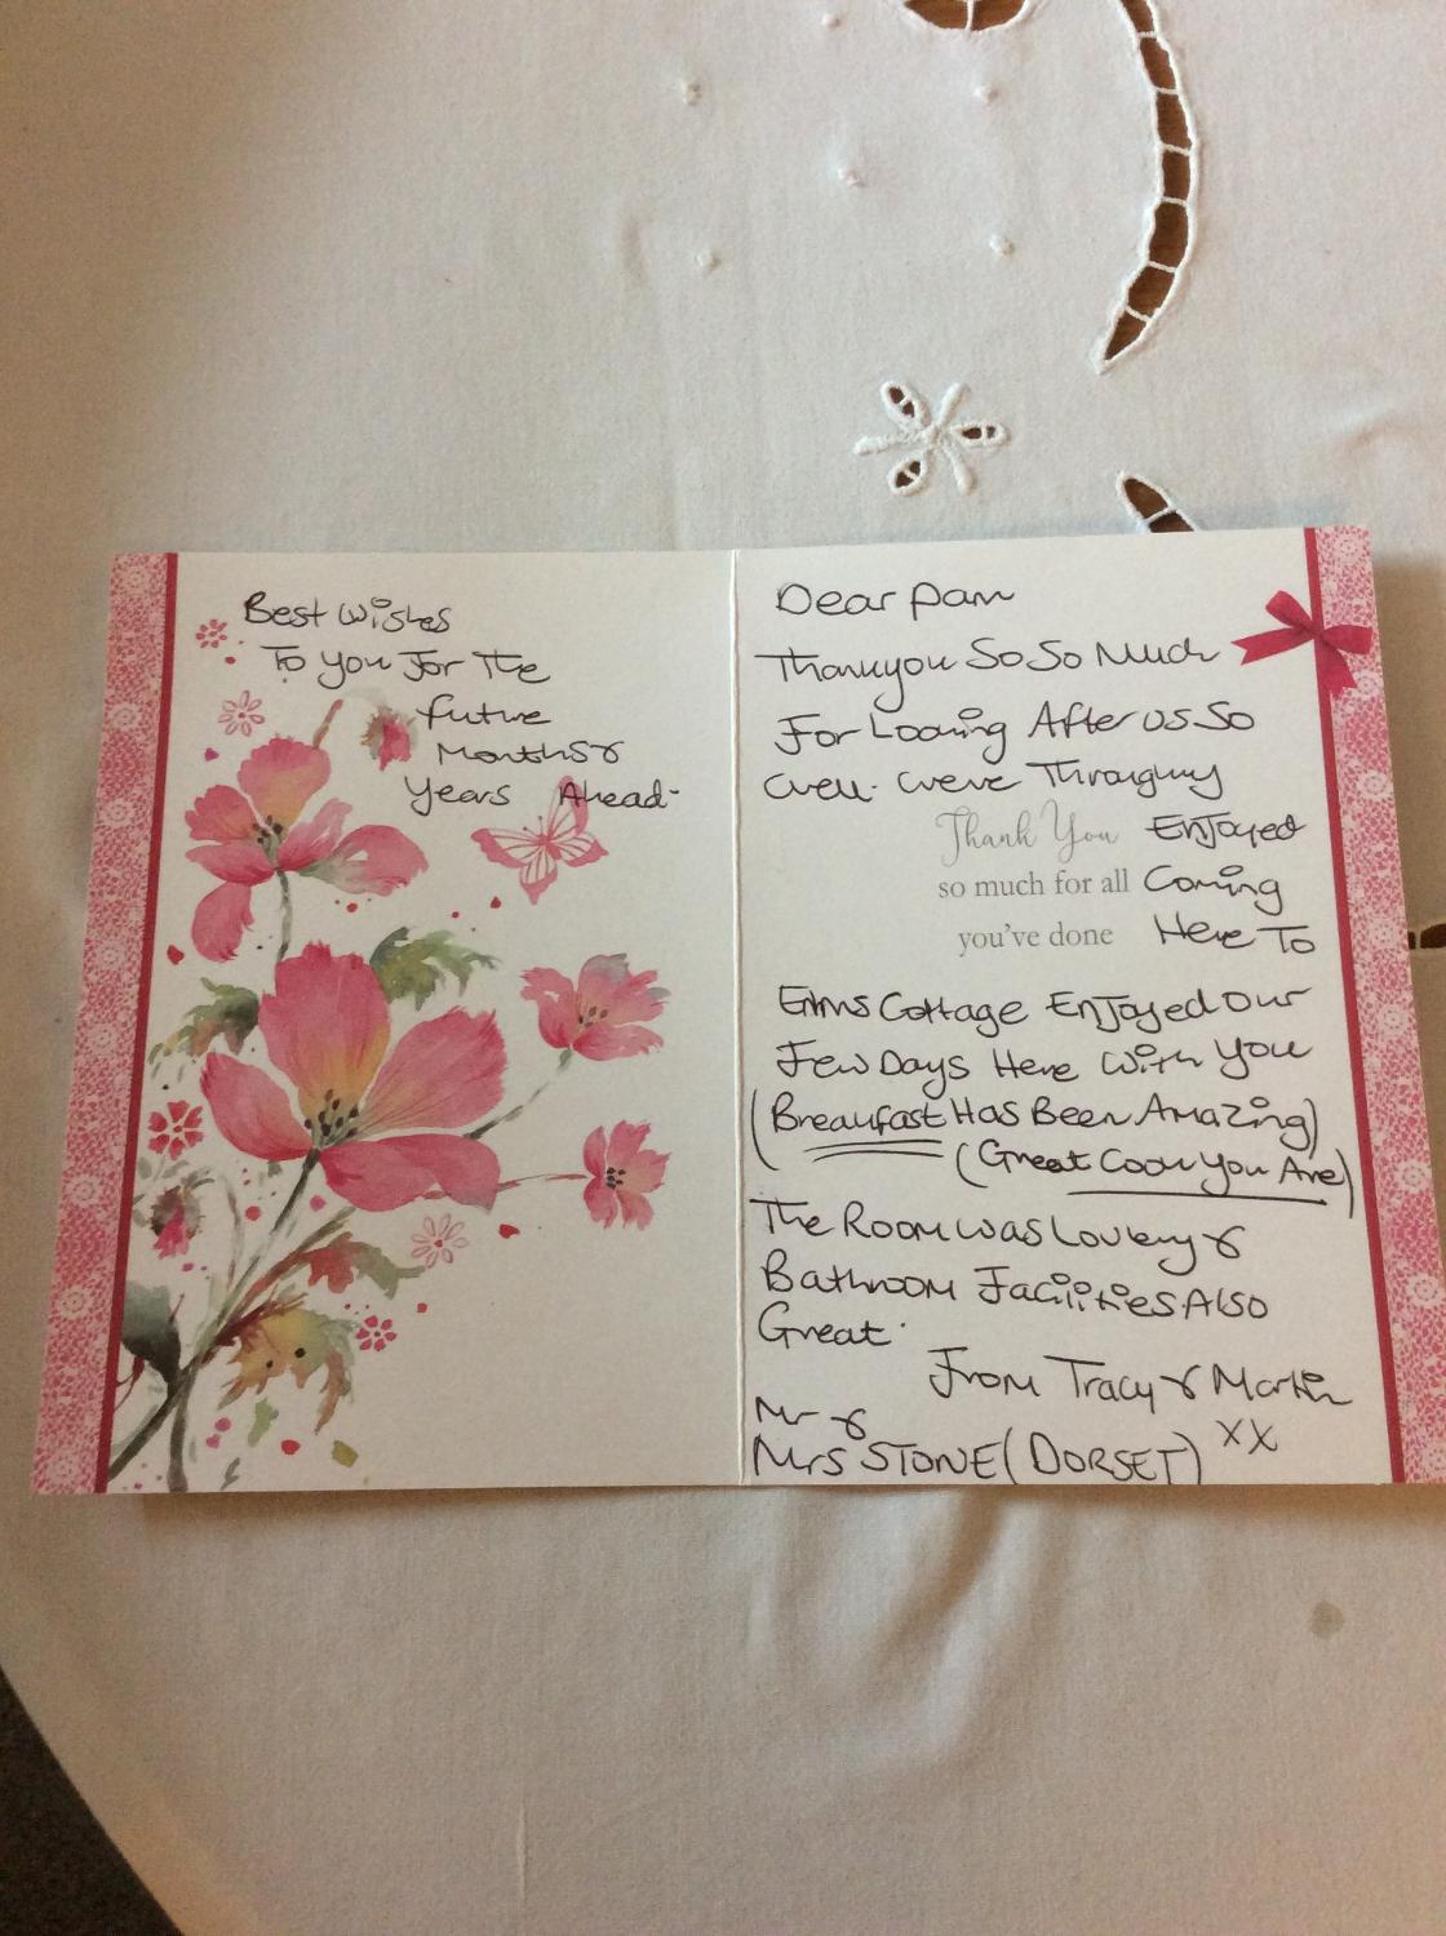 Best Wishes
To You For The
future
Months &
Years Ahead-
Dear Pam
Thankyou So So Much
For Looking After us So
well. Weve Throughly
Thank You Enjoyed
so much for all Coming
you've done Here To
Elms Cottage Enjoyed Our
Few Days Here With You
(Breakfast Has Been Amazing)
(Great Cook You Are)
The Room was Lovely &
Bathroom Facilities Also
Great.
From Tracy & Martin
Mr &
Mrs STONE (DORSET) XX